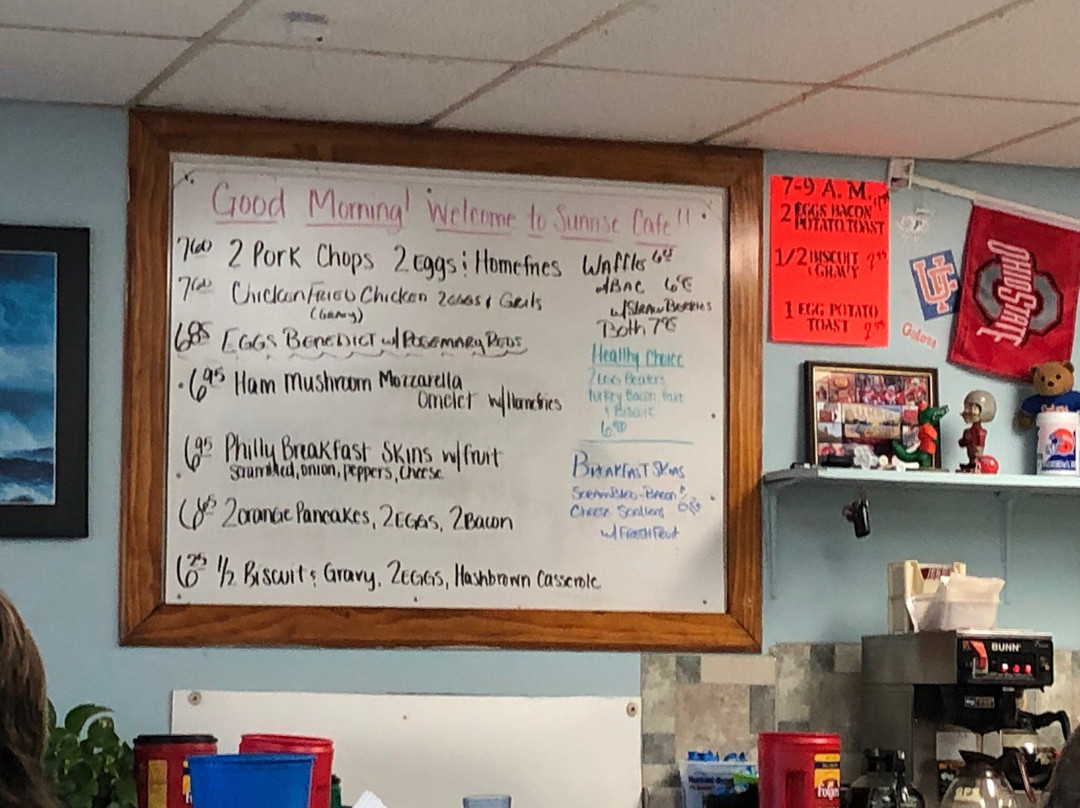 Good Morning! Welcome to Sunrise Cafe!!
7.60 2 Pork Chops 2 Eggs & Homefries
Chicken Fried Chicken 2 eggs & Grits
(Gravy)
6.85 Eggs Benedict w/ Rosemary Reds
6.95 Ham Mushroom Mozzarella
Omelet w/ Homefries
6.95 Philly Breakfast Skins w/fruit
scrambled, onion, peppers, cheese
2 orange Pancakes, 2 EGGS, 2 Bacon
6.25 1/2 Biscuit & Gravy, 2 EGGS, Hashbrown Casserole
Waffles
w/ Straw Berries
Both
Healthy Choice
Turkey Bacon fruit
& Biscuit
Breakfast Skins
Scrambled - Bacon
Cheese Scallions
w/ Fresh Fruit
7-9 A.M.
2 EGGS BACON
POTATO, TOAST
1/2 BISCUIT
& GRAVY
1 EGG POTATO
TOAST
UF
Gators
OHIO STATE
BUNN
Folgers